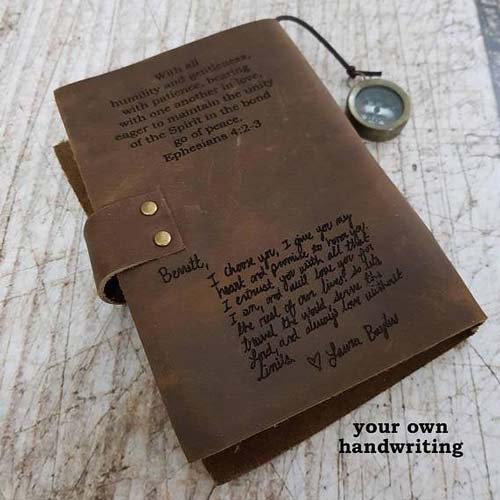 With all
humility and gentleness,
with patience, bearing
with one another in love,
eager to maintain the unity
of the Spirit in the bond
go of peace.
Ephesians 4:2-3
Berrett,
I choose you, I give you my
heart and promise to honor you
I entrust you with all that
I am, and will love you for
the rest of our lives! So lets
travel the world serve the
Lord, and always love without
limits.
♡ Laura Bayles
your own
handwriting